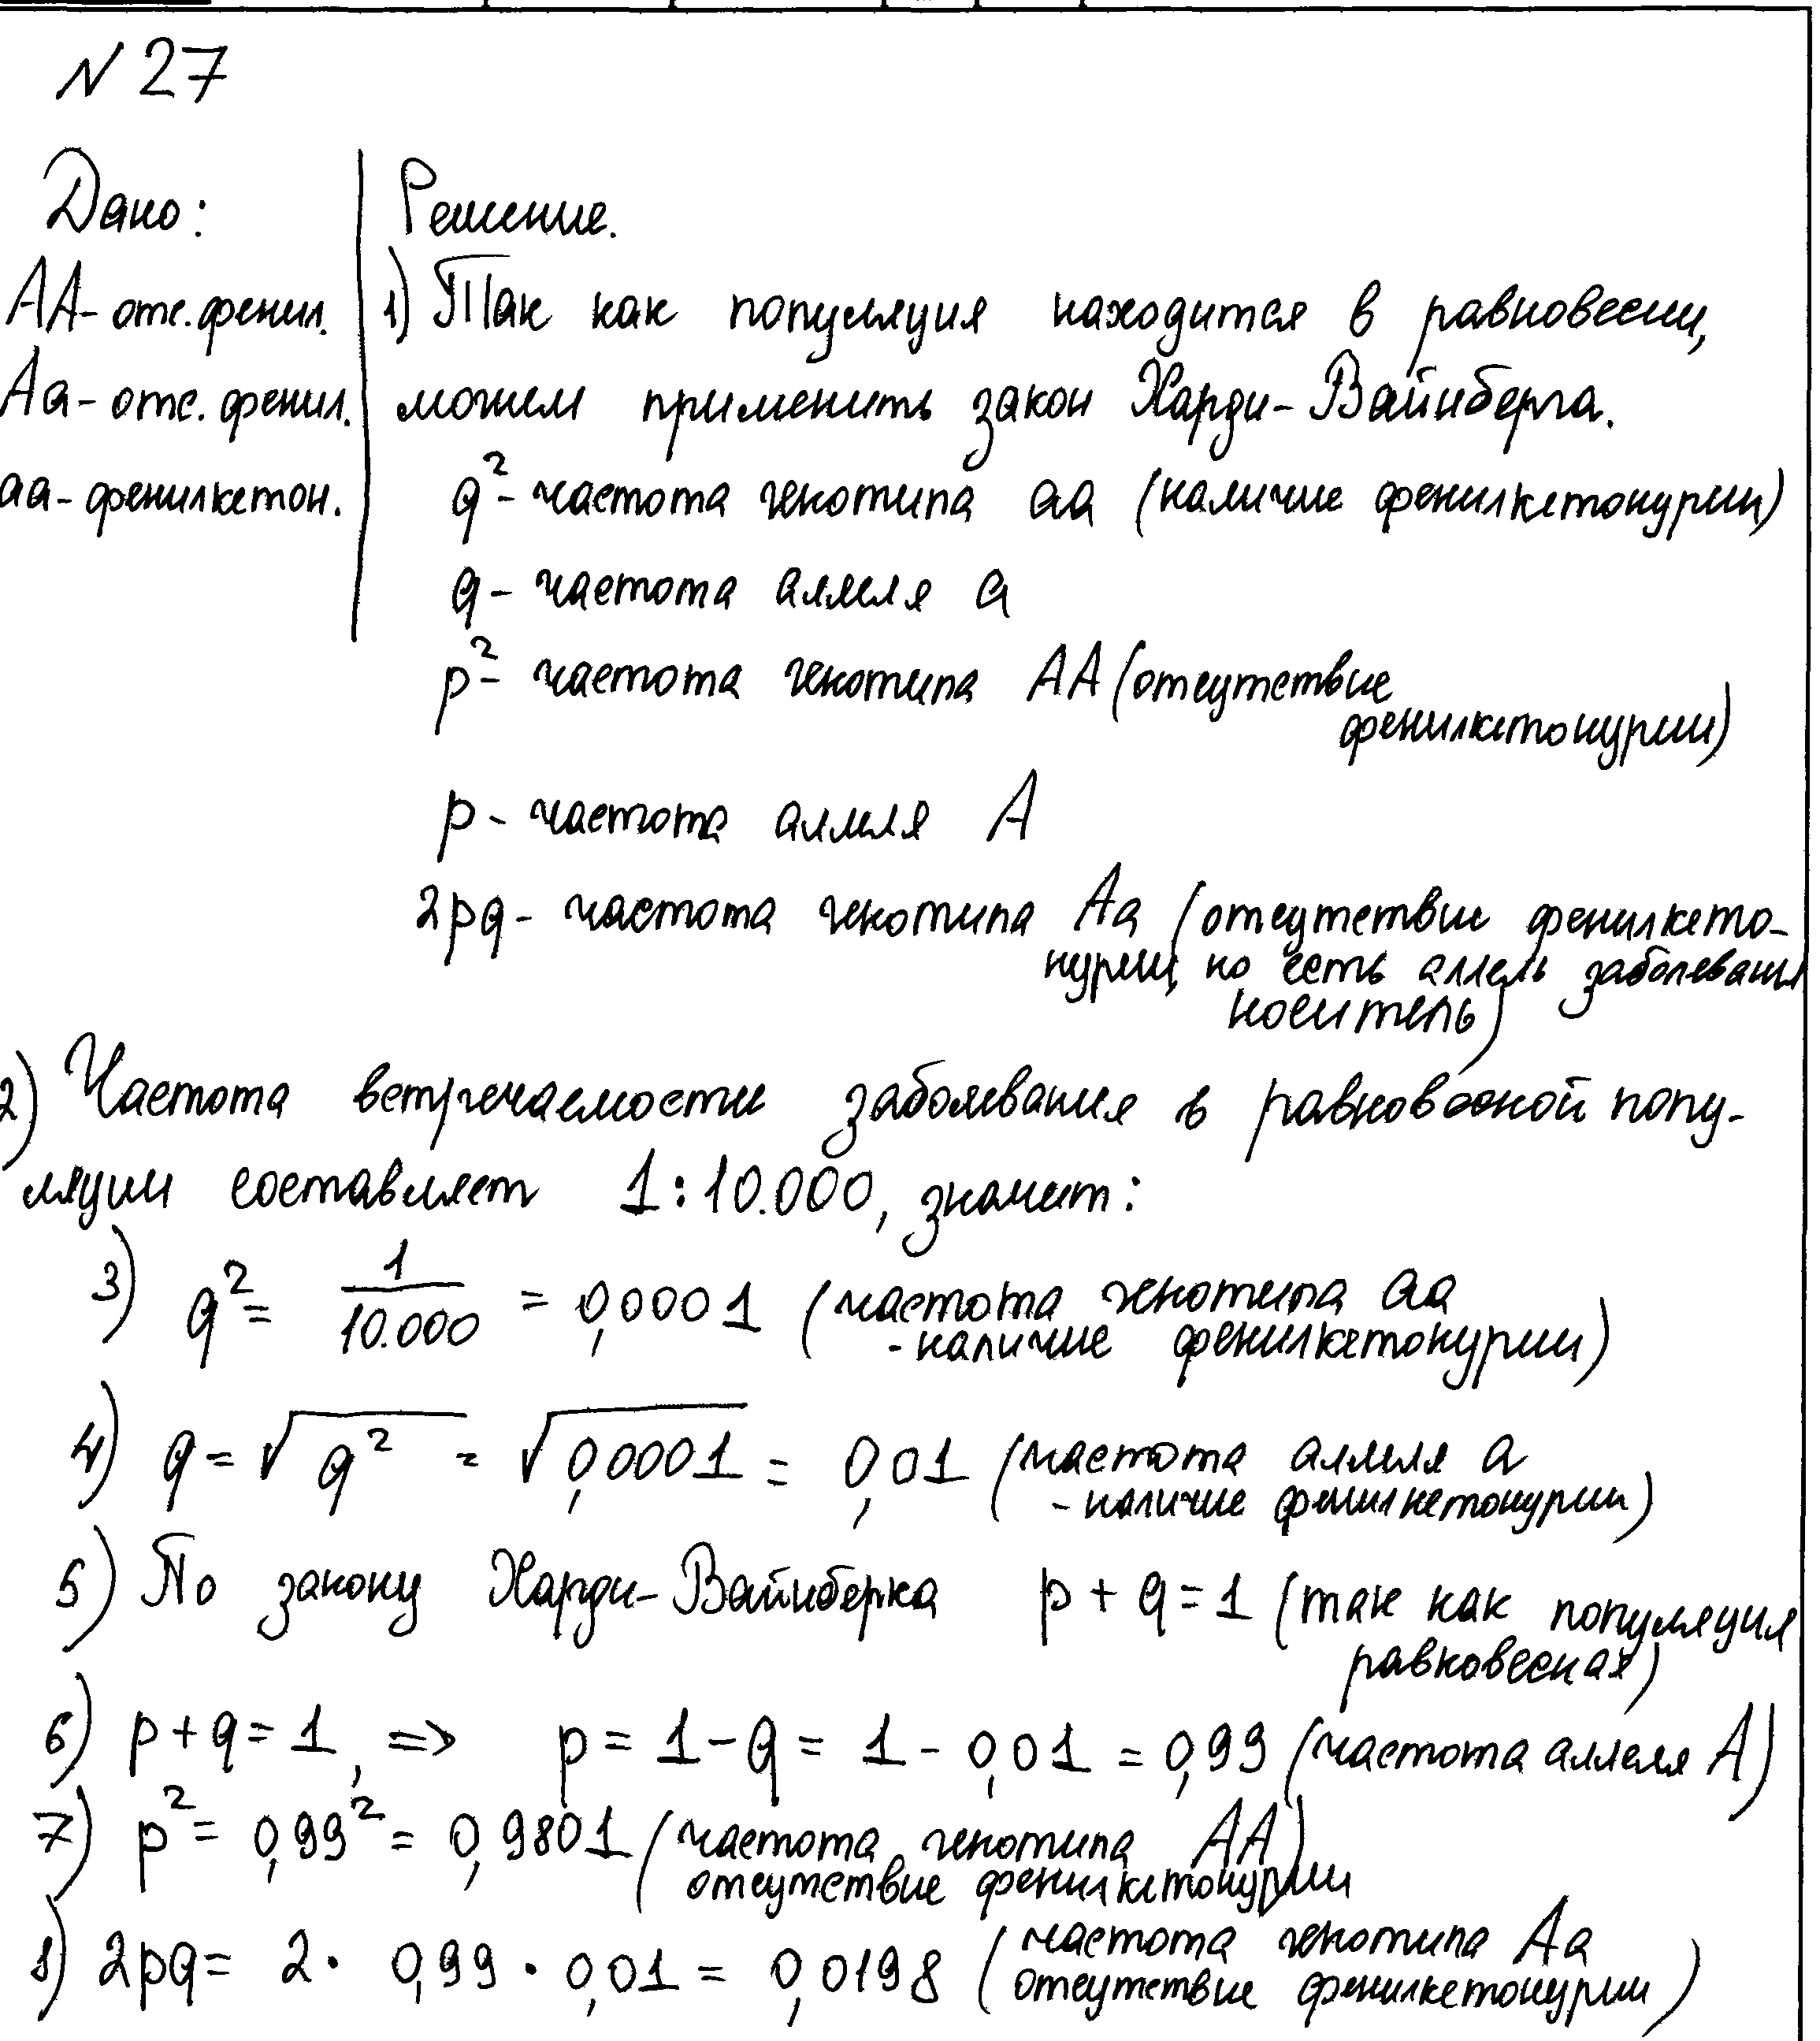 N 27
Дано:
АА- отс. фенил.
Аа- отс. фенил.
аа- фенилкетон.
Решение.
1) Так как популяция находится в равновесии,
можем применить закон Харди-Вайнберга.
q²- частота генотипа аа (наличие фенилкетонурии)
q- частота аллеля а
p²- частота генотипа АА (отсутствие
фенилкетонурии)
p- частота аллеля А
2pq- частота генотипа Аа (отсутствие фенилкето-
нурии, но есть аллель заболевания
носитель)
2) Частота встречаемости заболевания в равновесной попу-
ляции составляет 1:10.000, значит:
3) q² = 1/10.000 = 0,0001 (частота генотипа аа
- наличие фенилкетонурии)
4) q = √q² = √0,0001 = 0,01 (частота аллеля а
- наличие фенилкетонурии)
5) По закону Харди-Вайнберка p + q = 1 (так как популяция
равновесная)
6) p + q = 1, => p = 1 - q = 1 - 0,01 = 0,99 (частота аллеля А)
7) p² = 0,99² = 0,9801 (частота генотипа АА)
отсутствие фенилкетонурии
8) 2pq = 2 · 0,99 · 0,01 = 0,0198 (частота генотипа Аа
отсутствие фенилкетонурии)